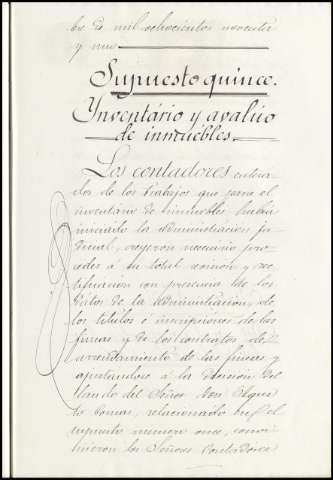 bre de mil ochocientos noventa
y uno
Supuesto quince.
Ynventário y avalúo
de inmuébles.
Los contadores entera-
dos de los trabajos que para el
inventário de inmuebles había
iniciado la administracion ju-
dicial, creyeron necesario pro-
ceder á su total revision y rec-
tificacion con presencia de los
datos de la Administracion, de
los titulos é inscripciones de las
fincas y de los contratos de
arrendamiento de las fincas y
ajustandose á la decision del
laudo del Señor Don
to Comas, relacionado en el
supuesto número once, convi-
nieron los Señores Contadores